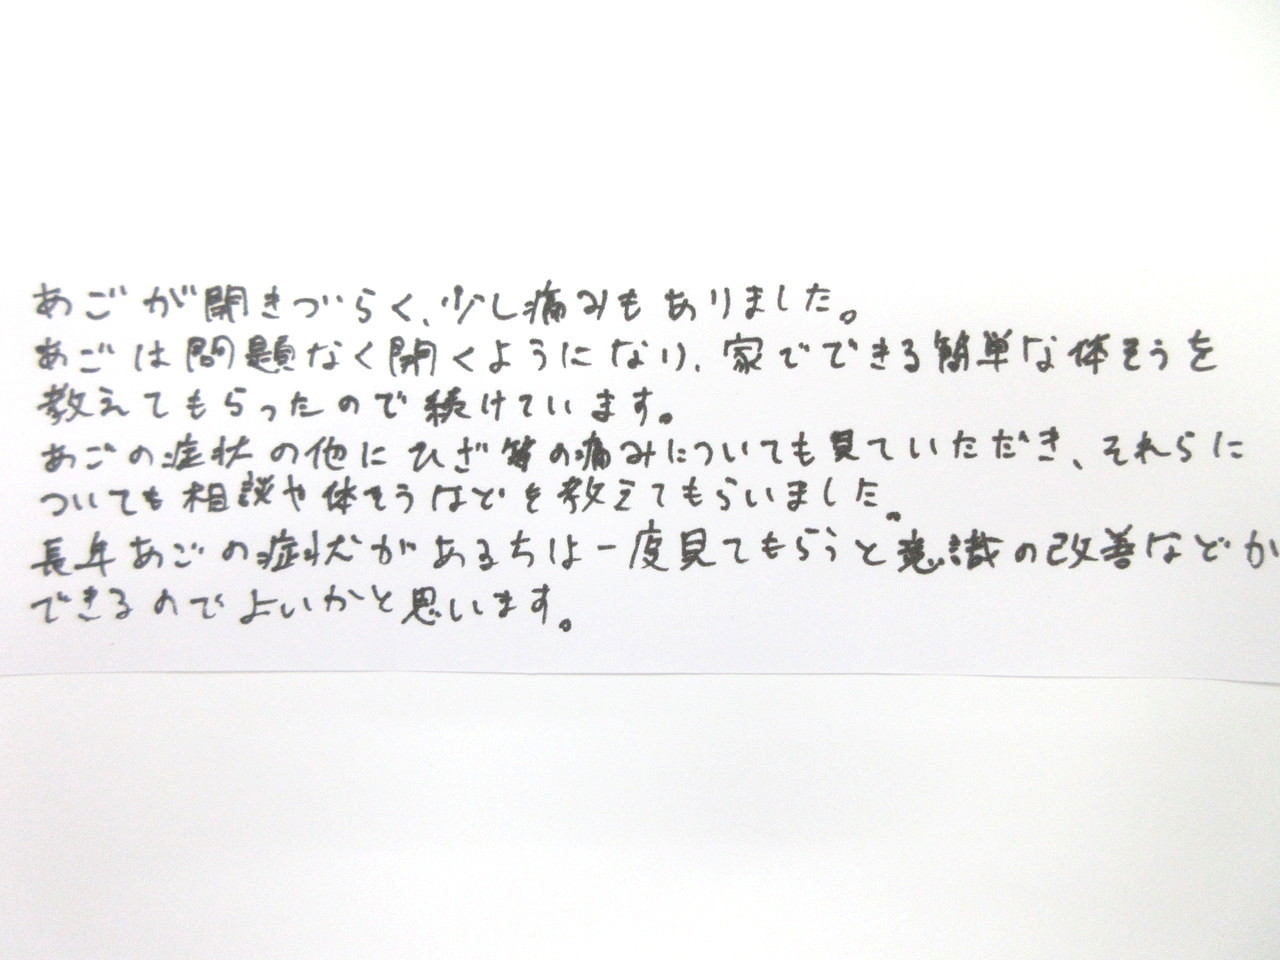 あごが開きづらく、少し痛みもありました。
あごは問題なく開くようになり、家でできる簡単な体そうを
教えてもらったので続けています。
あごの症状の他にひざ等の痛みについても見ていただき、それらに
ついても相談や体そうなどを教えてもらいました。
長年あごの症状がある方は一度見てもらうと意識の改善などが
できるのでよいかと思います。